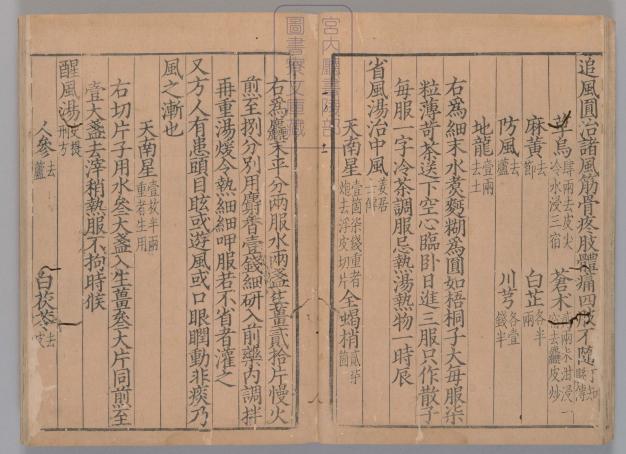 追風圓治諸風筋骨疼肢體痛四肢不隨
草烏肆兩去皮尖冷水浸三宿 蒼朮
麻黄去節 白芷各半兩
防風去蘆 川芎各壹錢半
地龍壹兩去土
右爲細末水煑麪糊爲圓如梧桐子大每服柒
粒薄荷茶送下空心臨卧日進三服只作散子
每服一字冷茶調服忌熱湯熱物一時辰
省風湯治中風
天南星壹箇柒錢重者炮去浮皮切片 全蝎梢貳柒箇
右爲麤末平分兩服水兩盞生薑貳拾片慢火
煎至捌分別用麝香壹錢細研入前藥内調拌
再重湯煖令熱細細呷服若不省者灌之
又方人有患頭目眩或遊風或口眼瞤動非痰乃
風之漸也
天南星壹枚半兩重者生用
右切片子用水叁大盞入生薑叁大片同煎至
壹大盞去滓稍熱服不拘時候
醒風湯
人參去蘆 白茯苓去皮
宮内廳書陵部
圖書寮文庫藏